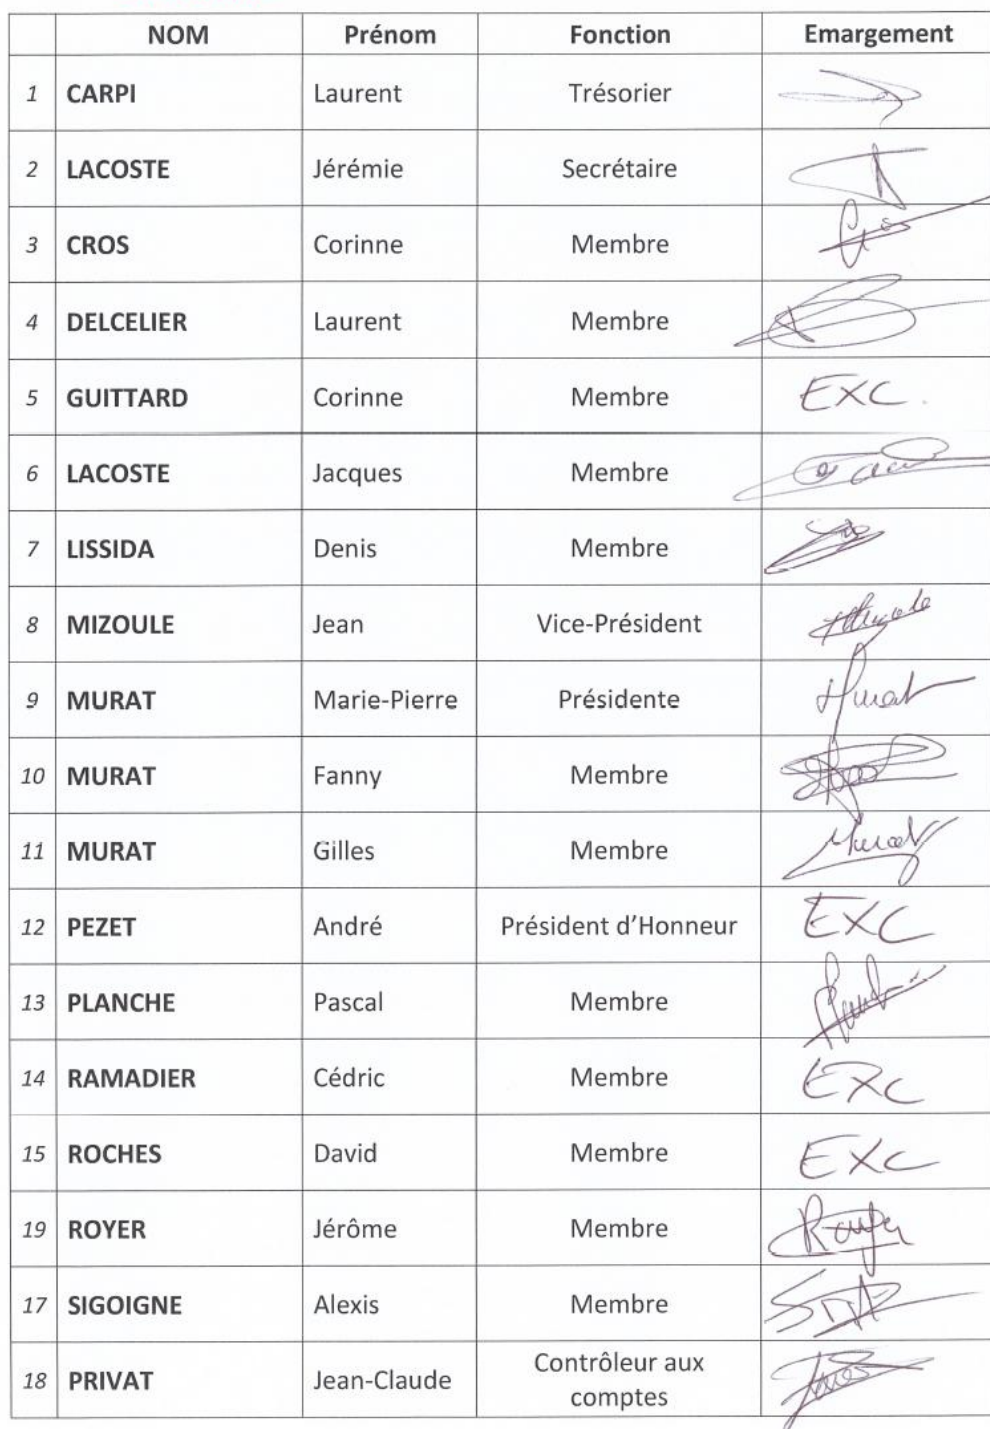 NOM Prénom Fonction Emargement
1 CARPI Laurent Trésorier
2 LACOSTE Jérémie Secrétaire
3 CROS Corinne Membre
4 DELCELIER Laurent Membre
5 GUITTARD Corinne Membre EXC.
6 LACOSTE Jacques Membre
7 LISSIDA Denis Membre
8 MIZOULE Jean Vice-Président
9 MURAT Marie-Pierre Présidente Murat
10 MURAT Fanny Membre
11 MURAT Gilles Membre Murat
12 PEZET André Président d'Honneur EXC
13 PLANCHE Pascal Membre
14 RAMADIER Cédric Membre EXC
15 ROCHES David Membre EXC
19 ROYER Jérôme Membre
17 SIGOIGNE Alexis Membre
18 PRIVAT Jean-Claude Contrôleur aux
comptes